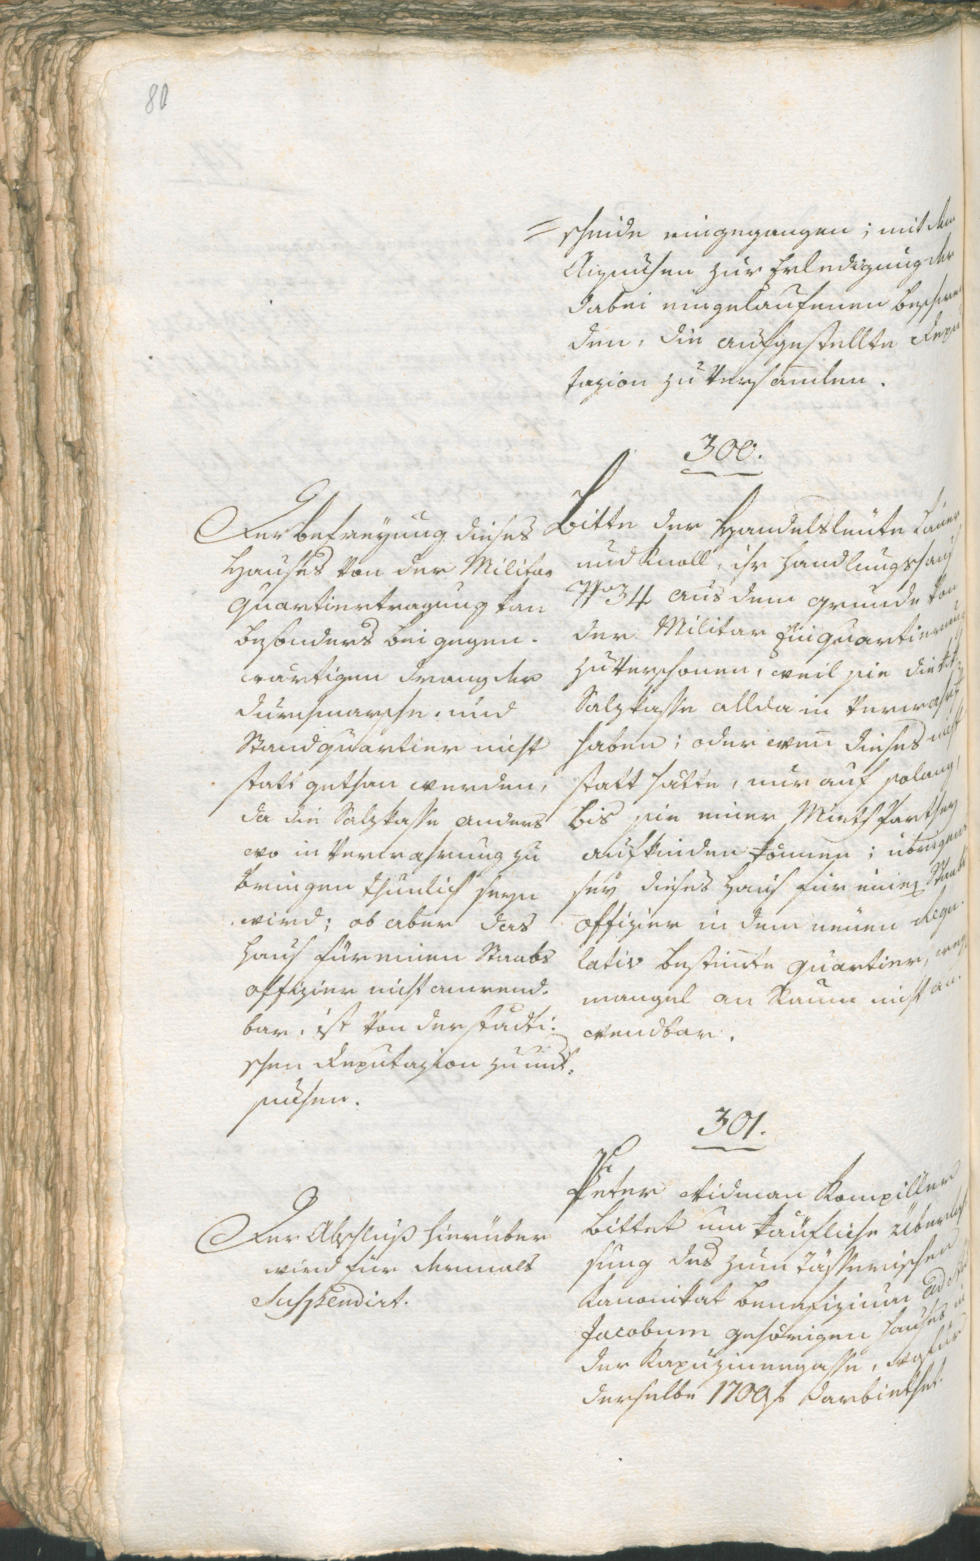 80
= scheide eingegangen; mit dem
Anzeichen zur Erledigung der
dabei eingelaufenen Beschwer
den, die aufgestellte Depu
tazion zu versamlen.
300.
Bitte der Handelsleüte
und Knoll, ihr Handlungshaus
No 34 aus dem Grunde von
der Militar Einquartierung
zu verschonen, weil sie die
Salzkasse allda in Verwahr
haben; oder wen dieses nicht
statt hätte, nur auf solang,
bis sie einer Mieths Parthey
aufkinden können; übrigens
sey dieses Haus für einen Staabs
offizier in dem neüen Regu
lativ bestimte Quartier, weg
mangel an Raum nicht an
wendbar.
Der befreÿung dieses
Hauses von der Militar
Quartiertragung kan
besonders bei gegen-
wärtigen Drang der
Durchmarsche und
Standquartier nicht
statt gethan werden,
da die Salzkasse anders
wo in Verwahrung zu
bringen thunlich seyn
wird; ob aber das
Haus für einen Staabs
offizier nicht anwend-
bar, ist von der städti-
schen Deputazion zu unt-
suchen.
301.
Peter Aidman Kompiller
bittet um käufliche Überlas
sung des zum Tässerischen
Kanonikat benefizium ad St
Jacobum gehörigen Hauses in
der Kapuzinergasse, wofür
derselbe 1700 f darbiethet.
Der Abschluß hierüber
wird für dermals
Suspendirt.